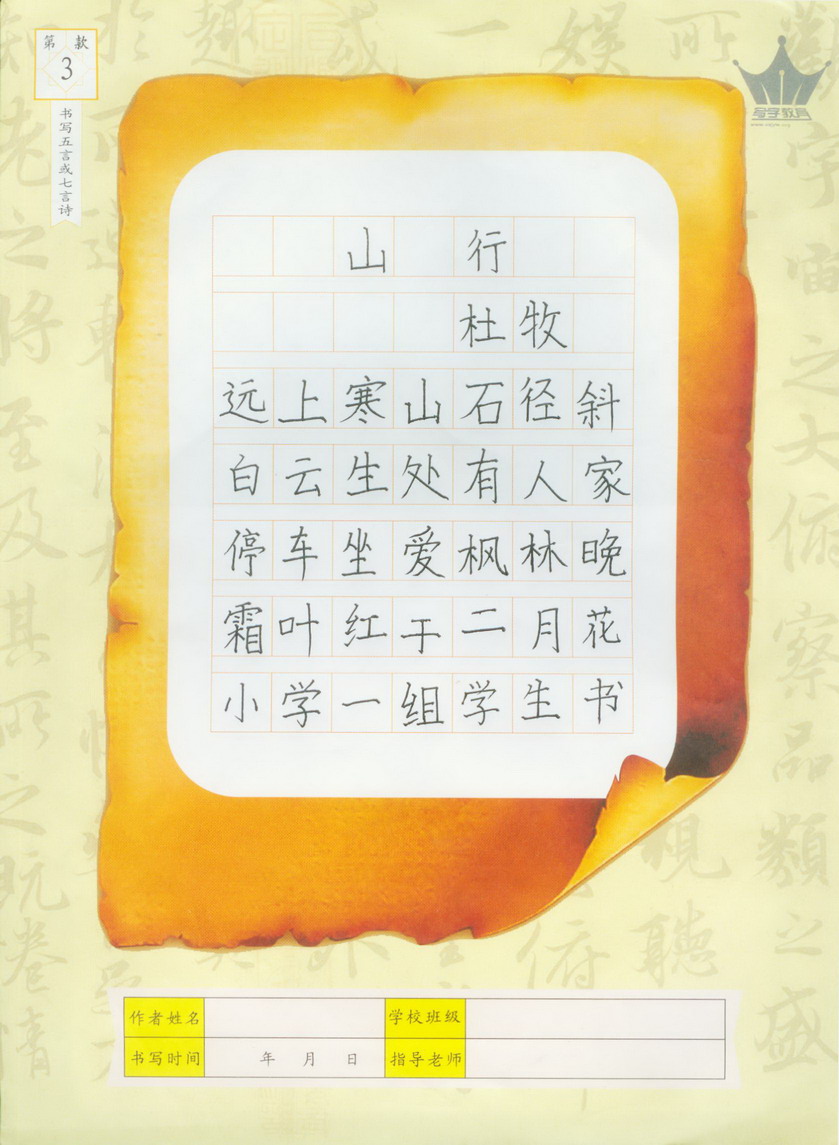 第 款
3
书写五言或七言诗
夸字教育
山 行
杜牧
远上寒山石径斜
白云生处有人家
停车坐爱枫林晚
霜叶红于二月花
小学一组学生书
作者姓名 学校班级
书写时间 年 月 日 指导老师